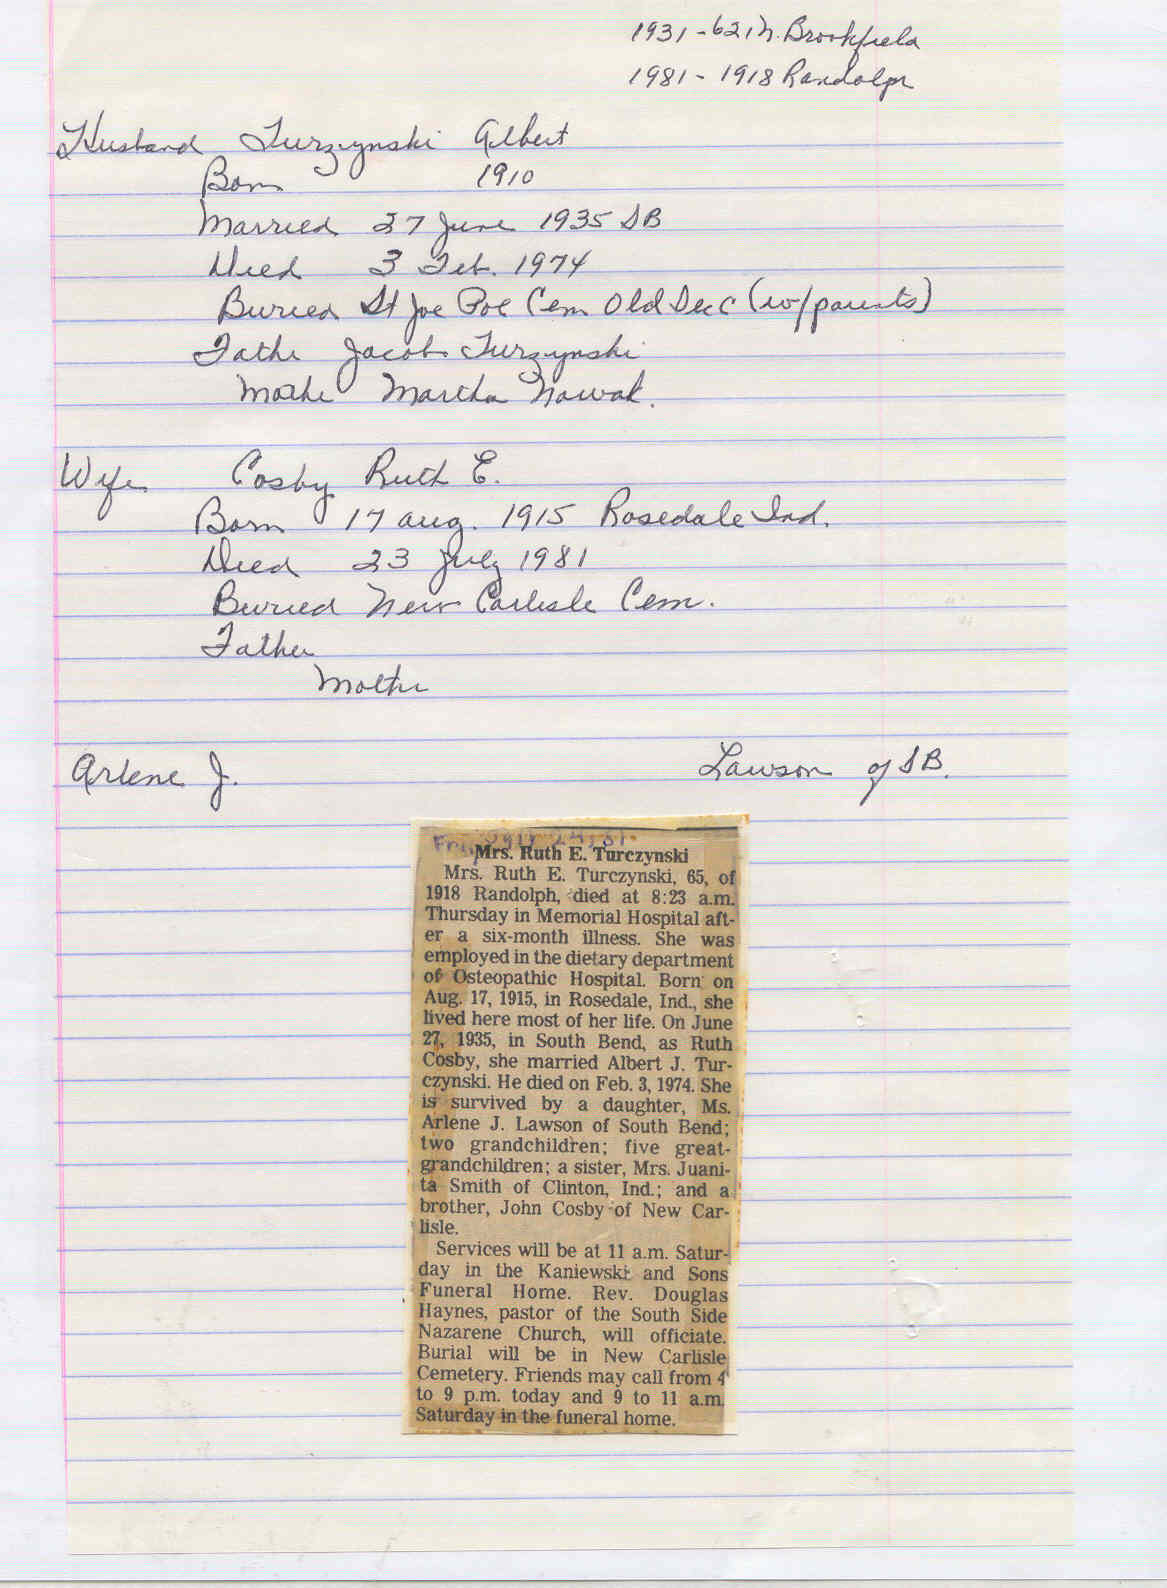 1931 - 621 N. Brookfield
1981 - 1918 Randolph
Husband Turzynski Albert
Born 1910
Married 27 June 1935 SB
Died 3 Feb. 1974
Buried St Joe Pol Cem Old Sec (w/parents)
Fathe Jacob Turzynski
Mothe Martha Nowak.
Wife Cosby Ruth E.
Born 17 Aug. 1915 Rosedale Ind.
Died 23 July 1981
Buried New Carlisle Cem.
Father
Mothe
Arlene J. Lawson of SB.
Fri, July 24, 81.
Mrs. Ruth E. Turczynski
Mrs. Ruth E. Turczynski, 65, of
1918 Randolph, died at 8:23 a.m.
Thursday in Memorial Hospital aft-
er a six-month illness. She was
employed in the dietary department
of Osteopathic Hospital. Born on
Aug. 17, 1915, in Rosedale, Ind., she
lived here most of her life. On June
27, 1935, in South Bend, as Ruth
Cosby, she married Albert J. Tur-
czynski. He died on Feb. 3, 1974. She
is survived by a daughter, Ms.
Arlene J. Lawson of South Bend;
two grandchildren; five great-
grandchildren; a sister, Mrs. Juani-
ta Smith of Clinton, Ind.; and a
brother, John Cosby of New Car-
lisle.
Services will be at 11 a.m. Satur-
day in the Kaniewski and Sons
Funeral Home. Rev. Douglas
Haynes, pastor of the South Side
Nazarene Church, will officiate.
Burial will be in New Carlisle
Cemetery. Friends may call from 4
to 9 p.m. today and 9 to 11 a.m.
Saturday in the funeral home.